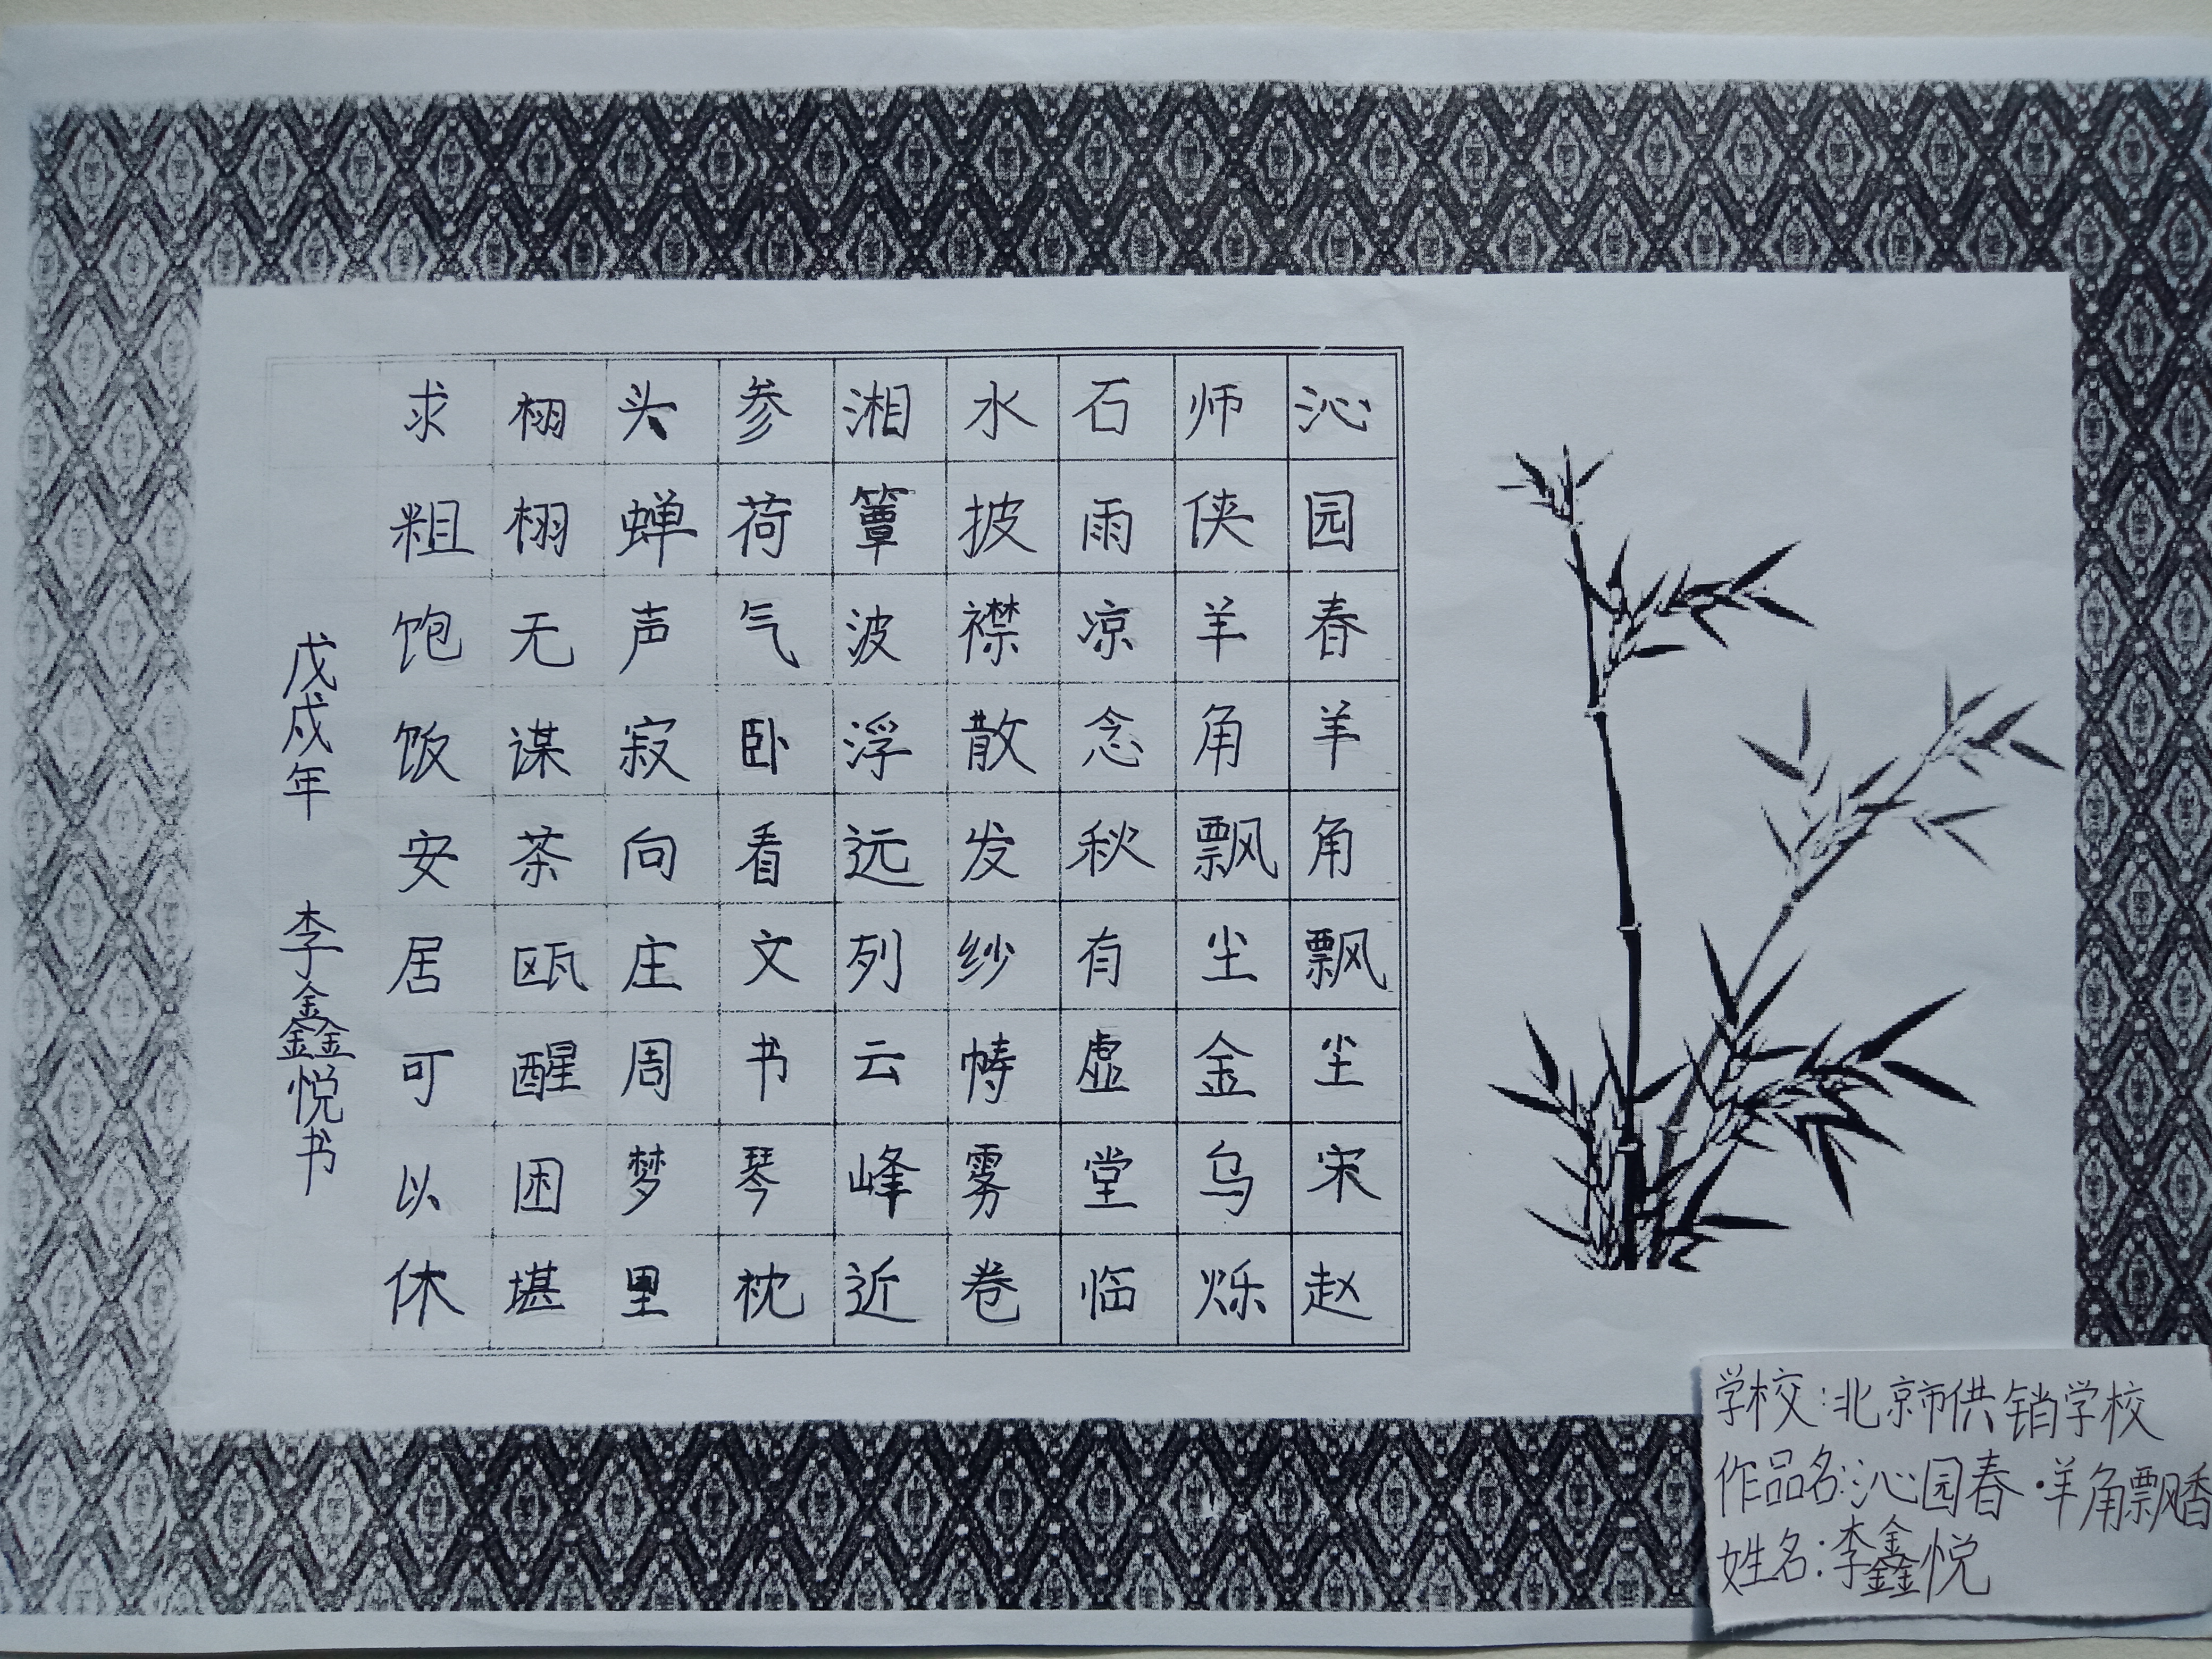 沁园春羊角飘尘宋赵
师侠羊角飘尘金乌烁
石雨凉念秋有虚堂临
水披襟散发纱帱雾卷
湘簟波浮远列云峰近
参荷气卧看文书琴枕
头蝉声寂向庄周梦里
栩栩无谋茶瓯醒困堪
求粗饱饭安居可以休
戊戌年 李鑫悦书
学校:北京市供销学校
作品名:沁园春·羊角飘香
姓名:李鑫悦